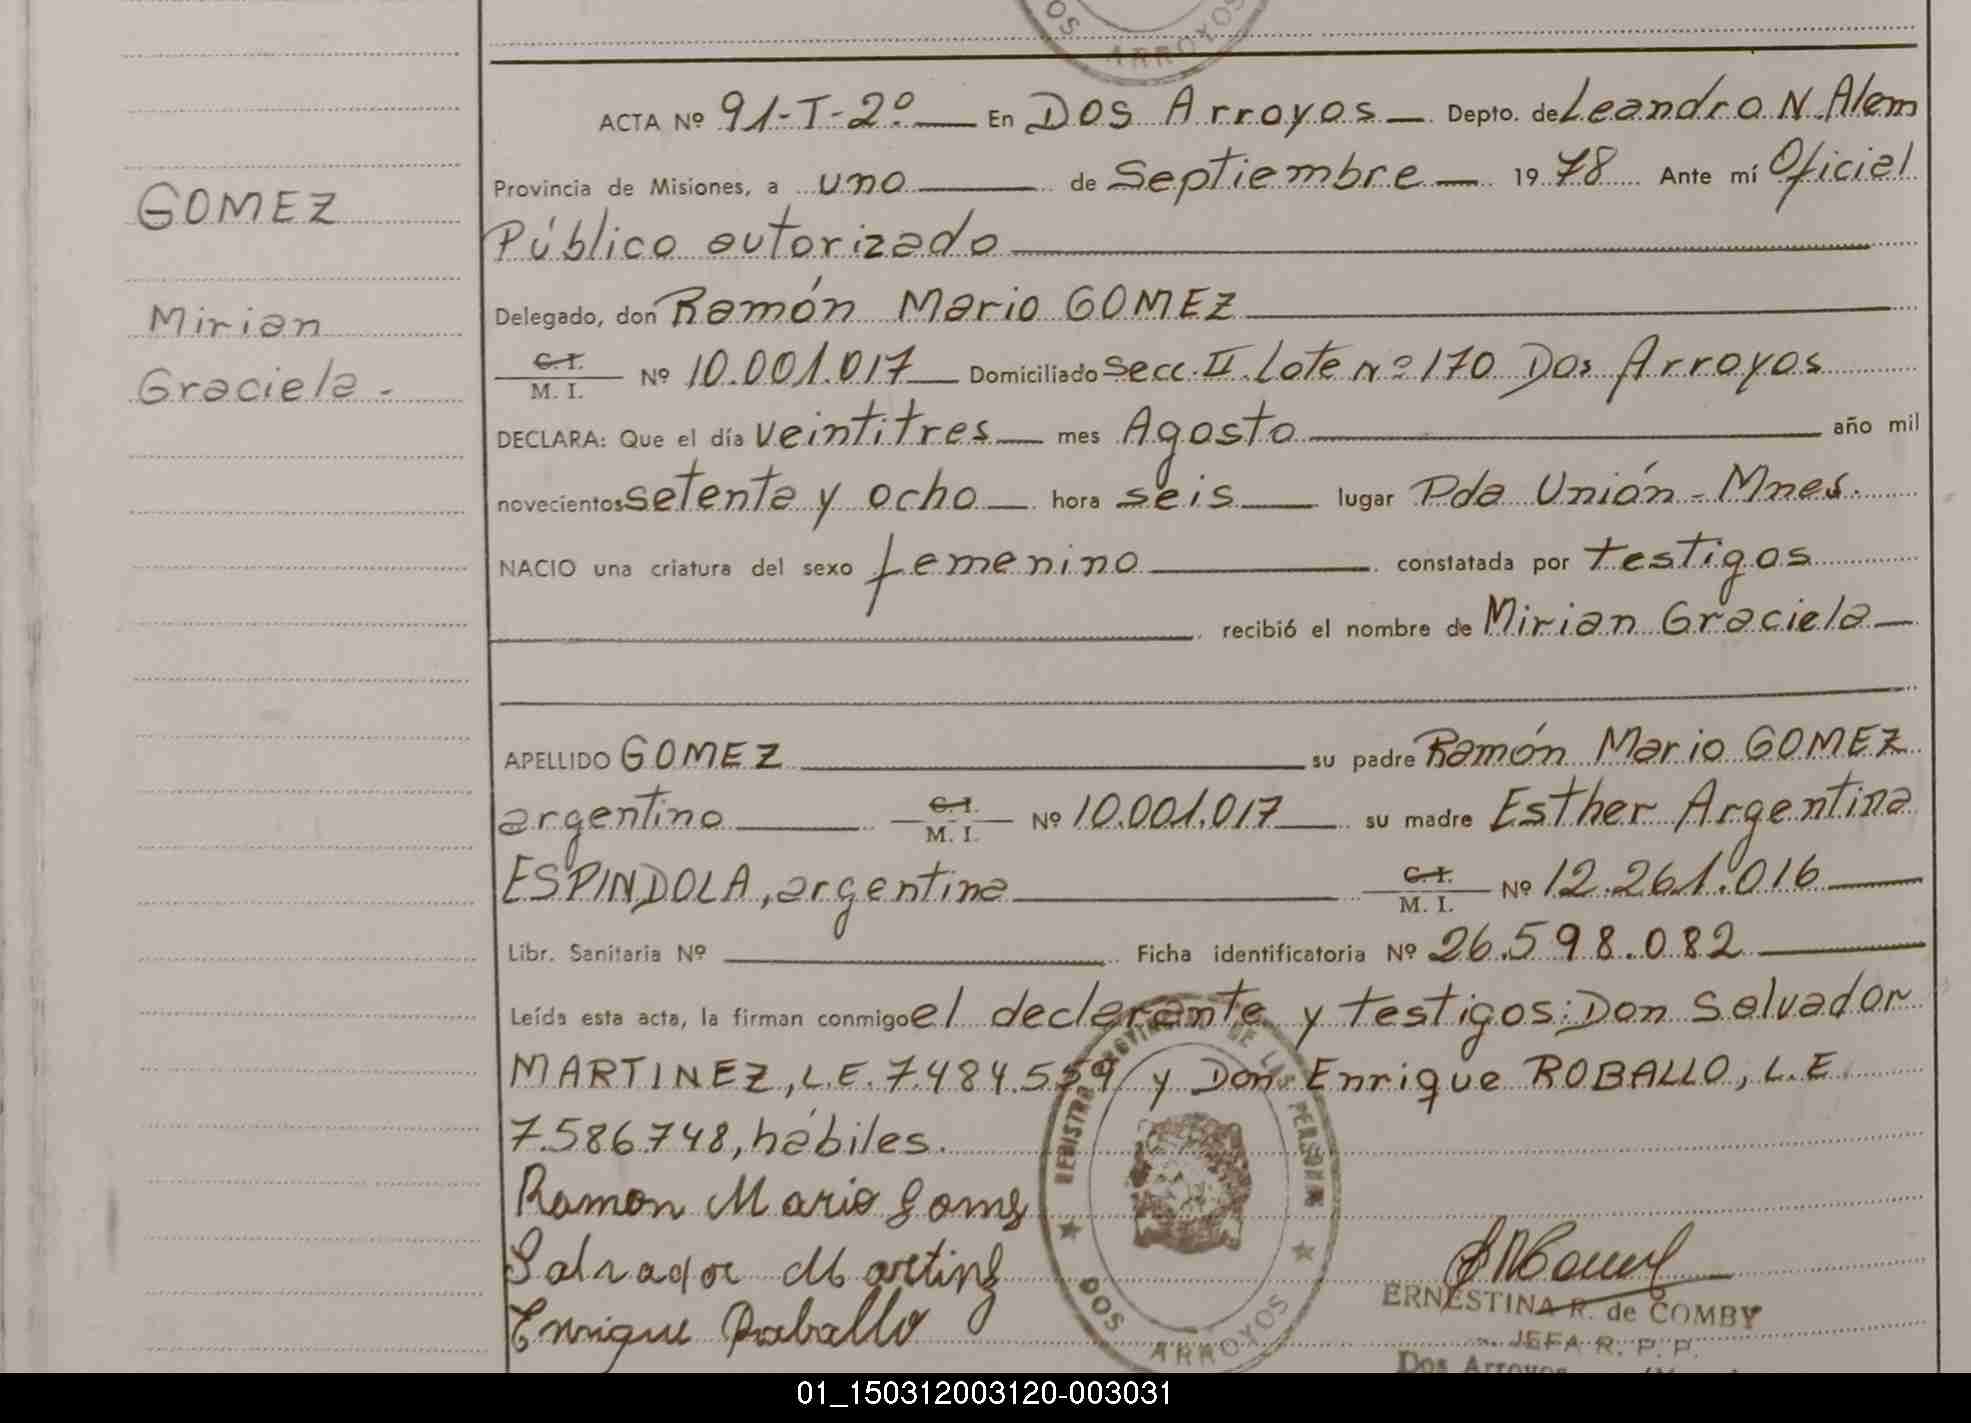 OS ARROYOS
ACTA Nº 91-T-2º En Dos Arroyos Depto. de Leandro N. Alem
Provincia de Misiones, a uno de Septiembre 1978 Ante mí Oficial
GOMEZ
Público autorizado
Mirian
Delegado, don Ramón Mario GOMEZ
Graciela.-
C.I. M. I. Nº 10.001.017 Domiciliado Secc. II. Lote Nº 170 Dos Arroyos
DECLARA: Que el día veintitres mes Agosto año mil
novecientos setenta y ocho hora seis lugar Pda Unión - Mnes.
NACIO una criatura del sexo femenino constatada por testigos
recibió el nombre de Mirian Graciela
APELLIDO GOMEZ su padre Ramón Mario GOMEZ
argentino C.I. M. I. Nº 10.001.017 su madre Esther Argentina
ESPINDOLA, argentina C.I. M. I. Nº 12.261.016
Libr. Sanitaria Nº Ficha identificatoria Nº 26.598.082
Leída esta acta, la firman conmigo el declarante y testigos: Don Salvador
MARTINEZ, L.E. 7.484.559 y Don Enrique ROBALLO, L.E
7.586.748, hábiles.
Ramon Mario Gomez
Salvador Martinez
Enrique Roballo
REGISTRO PROVINCIAL DE LAS PERSONAS
DOS ARROYOS
ERNESTINA R. de COMBY
JEFA R. P. P.
Dos Arroyos
01_150312003120-003031